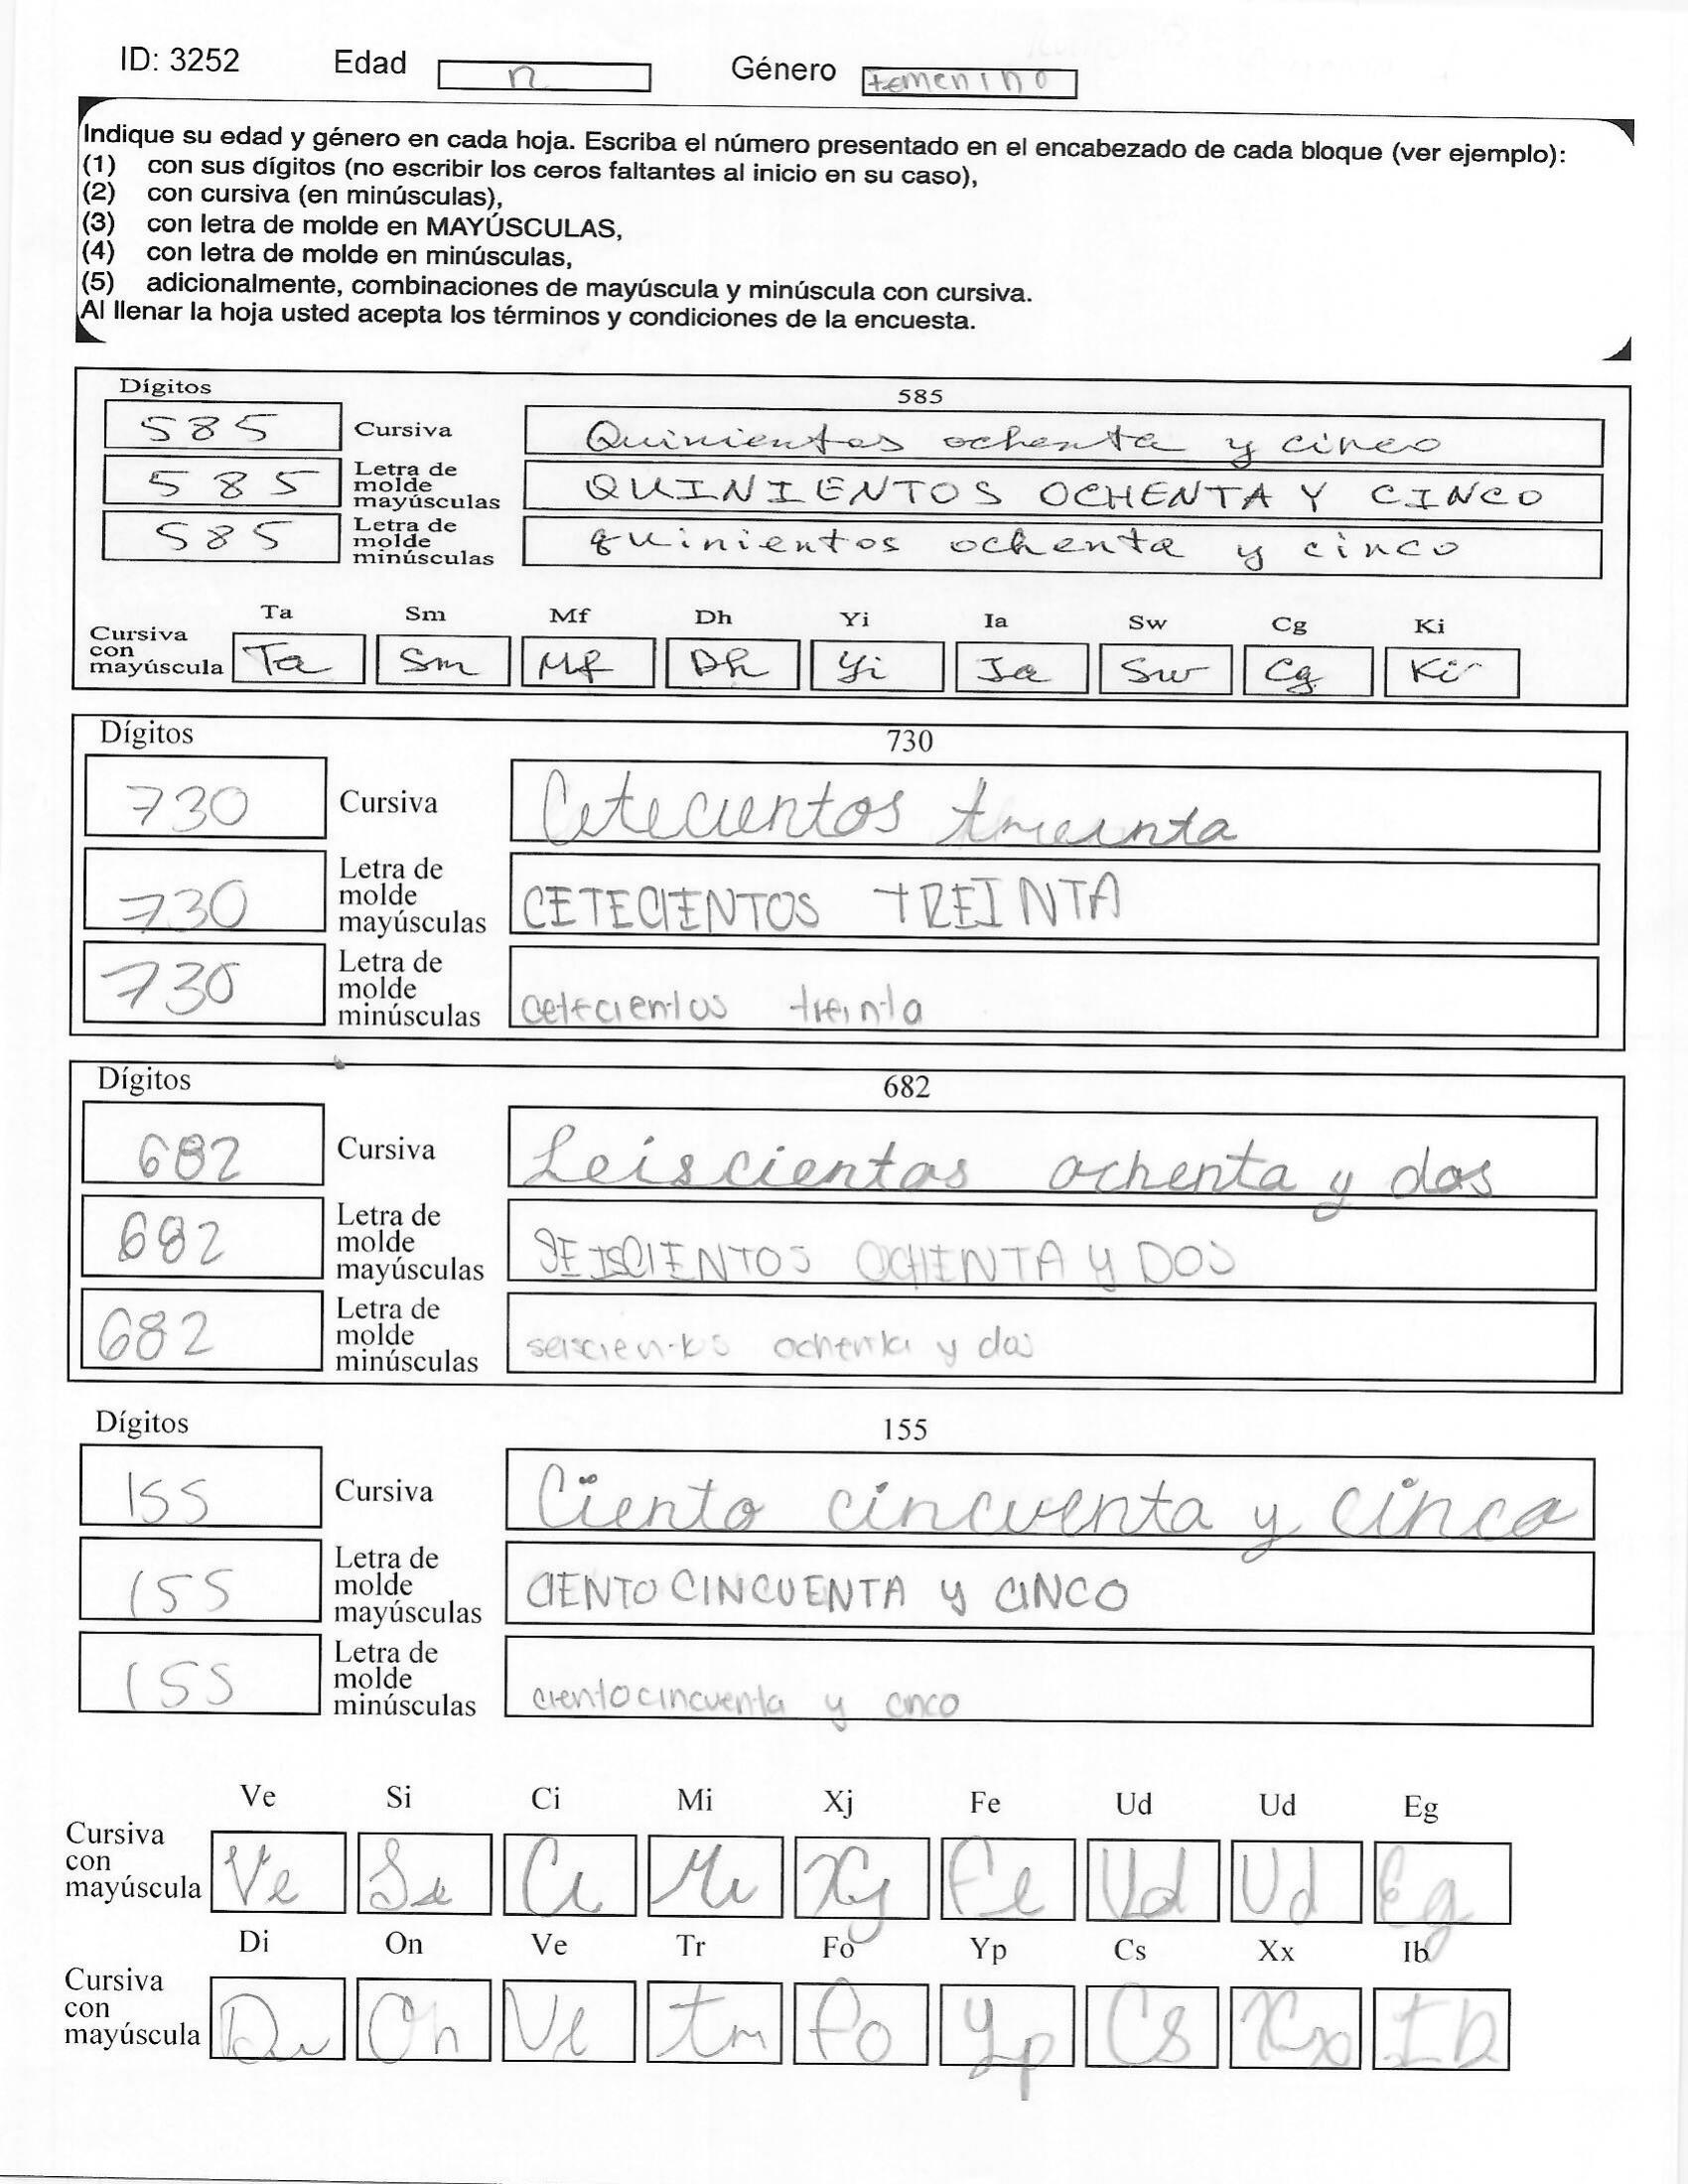 ID: 3252 Edad n Género femenino
Indique su edad y género en cada hoja. Escriba el número presentado en el encabezado de cada bloque (ver ejemplo):
(1) con sus dígitos (no escribir los ceros faltantes al inicio en su caso),
(2) con cursiva (en minúsculas),
(3) con letra de molde en MAYÚSCULAS,
(4) con letra de molde en minúsculas,
(5) adicionalmente, combinaciones de mayúscula y minúscula con cursiva.
Al llenar la hoja usted acepta los términos y condiciones de la encuesta.
Dígitos 585
585 Cursiva Quinientos ochenta y cinco
585 Letra de molde mayúsculas QUINIENTOS OCHENTA Y CINCO
585 Letra de molde minúsculas quinientos ochenta y cinco
Ta Sm Mf Dh Yi Ia Sw Cg Ki
Cursiva con mayúscula Ta Sm Mf Dh Yi Ia Sw Cg Ki
Dígitos 730
730 Cursiva Cetecientos treinta
730 Letra de molde mayúsculas CETECIENTOS TREINTA
730 Letra de molde minúsculas cetecientos treinta
Dígitos 682
682 Cursiva Seiscientos ochenta y dos
682 Letra de molde mayúsculas SEISCIENTOS OCHENTA Y DOS
682 Letra de molde minúsculas seiscientos ochenta y dos
Dígitos 155
155 Cursiva Ciento cincuenta y cinco
155 Letra de molde mayúsculas CIENTO CINCUENTA y CINCO
155 Letra de molde minúsculas ciento cincuenta y cinco
Ve Si Ci Mi Xj Fe Ud Ud Eg
Cursiva con mayúscula Ve Si Ci Mi Xj Fe Ud Ud Eg
Di On Ve Tr Fo Yp Cs Xx Ib
Cursiva con mayúscula Di On Ve Tr Fo Yp Cs Xx Ib